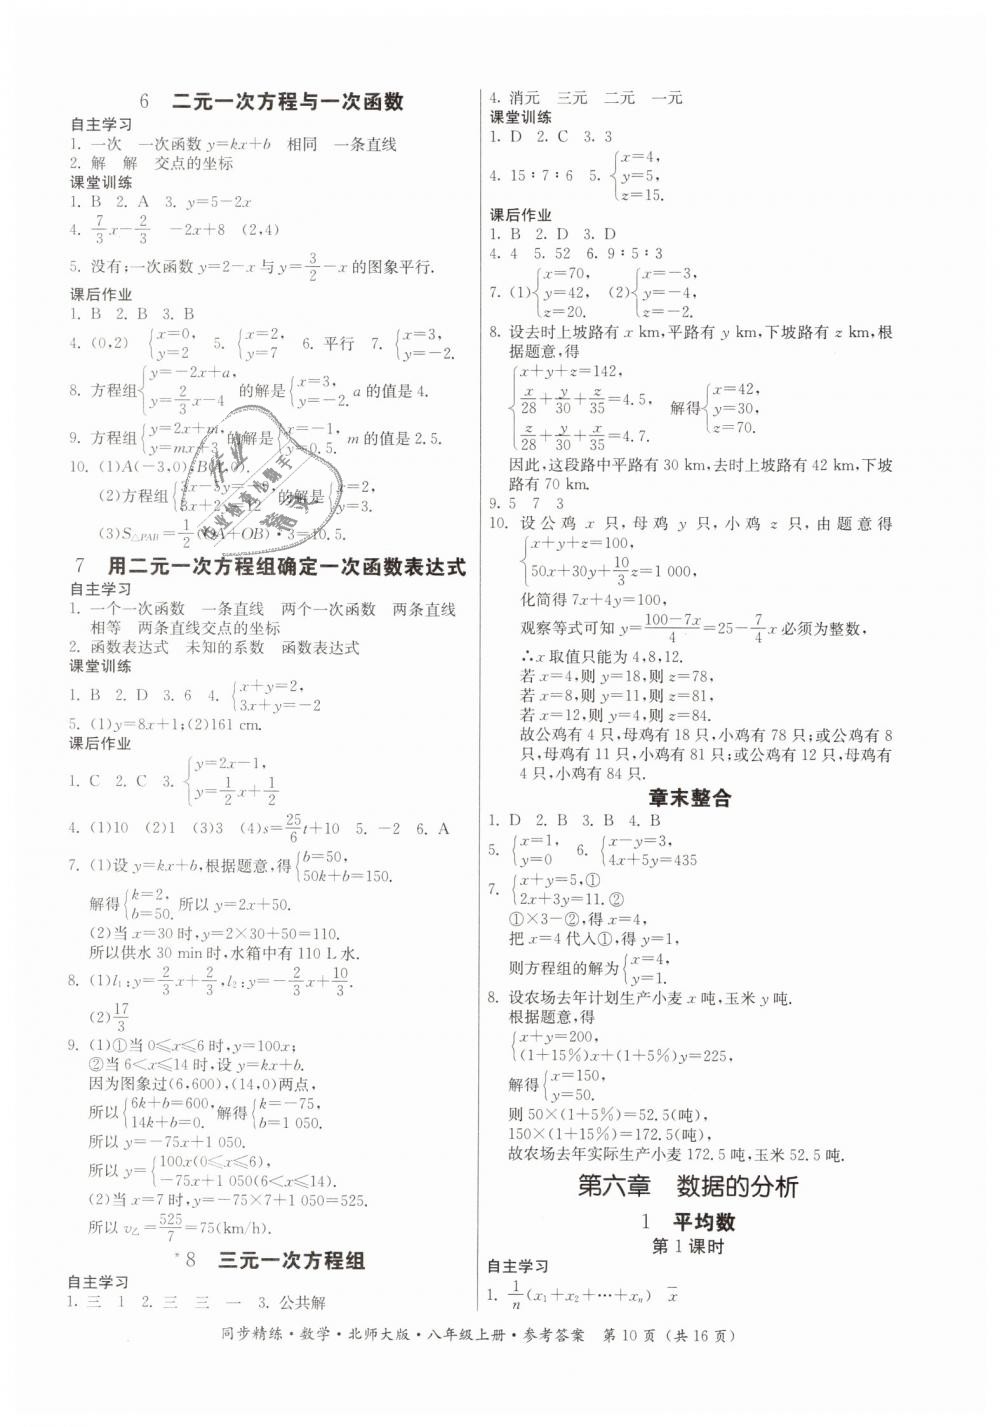 6 二元一次方程与一次函数
自主学习
1. 一次 一次函数 y=kx+b 相同 一条直线
2. 解 解 交点的坐标
课堂训练
1. B 2. A 3. y=5-2x
4. 7/3 x - 2/3 -2x+8 (2,4)
5. 没有;一次函数 y=2-x 与 y=3/2-x 的图象平行.
课后作业
1. B 2. B 3. B
4. (0,2) {x=0, y=2 5. {x=2, y=7 6. 平行 7. {x=3, y=-2.
8. 方程组{y=-2x+a, y=2/3 x-4 的解是{x=3, y=-2. a 的值是 4.
9. 方程组{y=2x+m, y=mx+3 的解是{x=-1, y=0.5. m 的值是 2.5.
10. (1)A(-3,0);B(4,0).
(2)方程组 的解是{x=2, y=3.
(3)S△PAB=1/2(OA+OB)·3=10.5.
7 用二元一次方程组确定一次函数表达式
自主学习
1. 一个一次函数 一条直线 两个一次函数 两条直线
相等 两条直线交点的坐标
2. 函数表达式 未知的系数 函数表达式
课堂训练
1. B 2. D 3. 6 4. {x+y=2, 3x+y=-2
5. (1)y=8x+1;(2)161 cm.
课后作业
1. C 2. C 3. {y=2x-1, y=1/2 x+1/2
4. (1)10 (2)1 (3)3 (4)s=25/6 t+10 5. -2 6. A
7. (1)设 y=kx+b,根据题意,得{b=50, 50k+b=150.
解得{k=2, b=50. 所以 y=2x+50.
(2)当 x=30 时,y=2×30+50=110.
所以供水 30 min 时,水箱中有 110 L 水.
8. (1)l₁:y=2/3 x+2/3,l₂:y=-2/3 x+10/3.
(2)17/3
9. (1)①当 0≤x≤6 时,y=100x;
②当 6<x≤14 时,设 y=kx+b.
因为图象过(6,600),(14,0)两点,
所以{6k+b=600, 14k+b=0. 解得{k=-75, b=1 050.
所以 y=-75x+1 050.
所以 y={100x(0≤x≤6), -75x+1 050(6<x≤14).
(2)当 x=7 时,y=-75×7+1 050=525.
所以 v乙=525/7=75(km/h).
*8 三元一次方程组
自主学习
1. 三 1 2. 三 三 一 3. 公共解
4. 消元 三元 二元 一元
课堂训练
1. D 2. C 3. 3
4. 15∶7∶6 5. {x=4, y=5, z=15.
课后作业
1. B 2. D 3. D
4. 4 5. 52 6. 9∶5∶3
7. (1){x=70, y=42, z=20. (2){x=-3, y=-4, z=-2.
8. 设去时上坡路有 x km,平路有 y km,下坡路有 z km,根
据题意,得
{x+y+z=142, x/28+y/30+z/35=4.5, z/28+y/30+x/35=4.7. 解得{x=42, y=30, z=70.
因此,这段路中平路有 30 km,去时上坡路有 42 km,下坡
路有 70 km.
9. 5 7 3
10. 设公鸡 x 只,母鸡 y 只,小鸡 z 只,由题意得
{x+y+z=100, 50x+30y+10/3 z=1 000,
化简得 7x+4y=100,
观察等式可知 y=(100-7x)/4=25-7/4 x 必须为整数,
∴x 取值只能为 4,8,12.
若 x=4,则 y=18,则 z=78,
若 x=8,则 y=11,则 z=81,
若 x=12,则 y=4,则 z=84.
故公鸡有 4 只,母鸡有 18 只,小鸡有 78 只;或公鸡有 8
只,母鸡有 11 只,小鸡有 81 只;或公鸡有 12 只,母鸡有
4 只,小鸡有 84 只.
章末整合
1. D 2. B 3. B 4. B
5. {x=1, y=0 6. {x-y=3, 4x+5y=435
7. {x+y=5,① 2x+3y=11.②
①×3-②,得 x=4,
把 x=4 代入①,得 y=1,
则方程组的解为{x=4, y=1.
8. 设农场去年计划生产小麦 x 吨,玉米 y 吨.
根据题意,得
{x+y=200, (1+15%)x+(1+5%)y=225,
解得{x=150, y=50.
则 50×(1+5%)=52.5(吨),
150×(1+15%)=172.5(吨),
故农场去年实际生产小麦 172.5 吨,玉米 52.5 吨.
第六章 数据的分析
1 平均数
第 1 课时
自主学习
1. 1/n(x₁+x₂+…+xₙ) x̄
同步精练·数学·北师大版·八年级上册·参考答案 第 10 页(共 16 页)